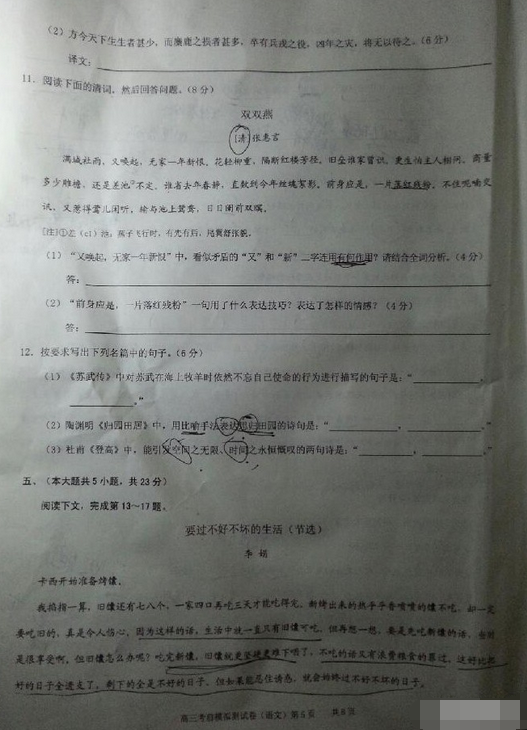 (2)方今天下生生者甚少,而靡鹿之损者甚多,卒有兵戎之役,凶年之灾,将无以待之。(6分)
译文:
11. 阅读下面的清词,然后回答问题。(8分)
双双燕
[清]张惠言
满城社雨,又唤起,无家一年新恨。花轻柳重,隔断红楼芳径。旧垒谁家曾识,更生怕主人相问。商量
多少雕檐,还是差池①不定。谁省去年春静,直数到今年丝魂絮影。前身应是,一片落红残粉。不住呢喃交
讯,又惹得莺儿闲听。输与池上鸳鸯,日日阑前双暝。
[注]①差(cī)池,燕子飞行时,有先有后,尾翼舒张貌。
(1)“又唤起,无家一年新恨”中,看似矛盾的“又”和“新”二字连用有何作用?请结合全词分析。(4分)
答:
(2)“前身应是,一片落红残粉”一句用了什么表达技巧?表达了怎样的情感?(4分)
答:
12. 按要求写出下列名篇中的句子。(6分)
(1)《苏武传》中对苏武在海上牧羊时依然不忘自己使命的行为进行描写的句子是:“
。”
(2)陶渊明《归园田居》中,用比喻手法表达思归田园的诗句是:“
(3)杜甫《登高》中,能引发空间之无限、时间之永恒慨叹的两句诗是:“
五、(本大题共5小题,共23分)
阅读下文,完成第13~17题。
要过不好不坏的生活(节选)
李娟
卡西开始准备烤馕。
我掐指一算,旧馕还有七八个,一家四口再吃三天才能吃得完。新烤出来的热乎乎香喷喷的馕不吃,却一定
要吃旧的,真是令人伤心。因为这样的话,生活中就一直只有旧馕可吃。但再想一想,要是先吃新馕的话,当时
是很享受啊,但旧馕怎么办呢?吃完新馕,旧馕就更坚硬更难下咽了。不吃的话又有浪费粮食的罪过。这好比把
好的日子全透支了,剩下的全是不好的日子。但如果能忍住诱惑,就会始终过不好不坏的日子。
高三考前模拟测试卷(语文)第5页 共8页